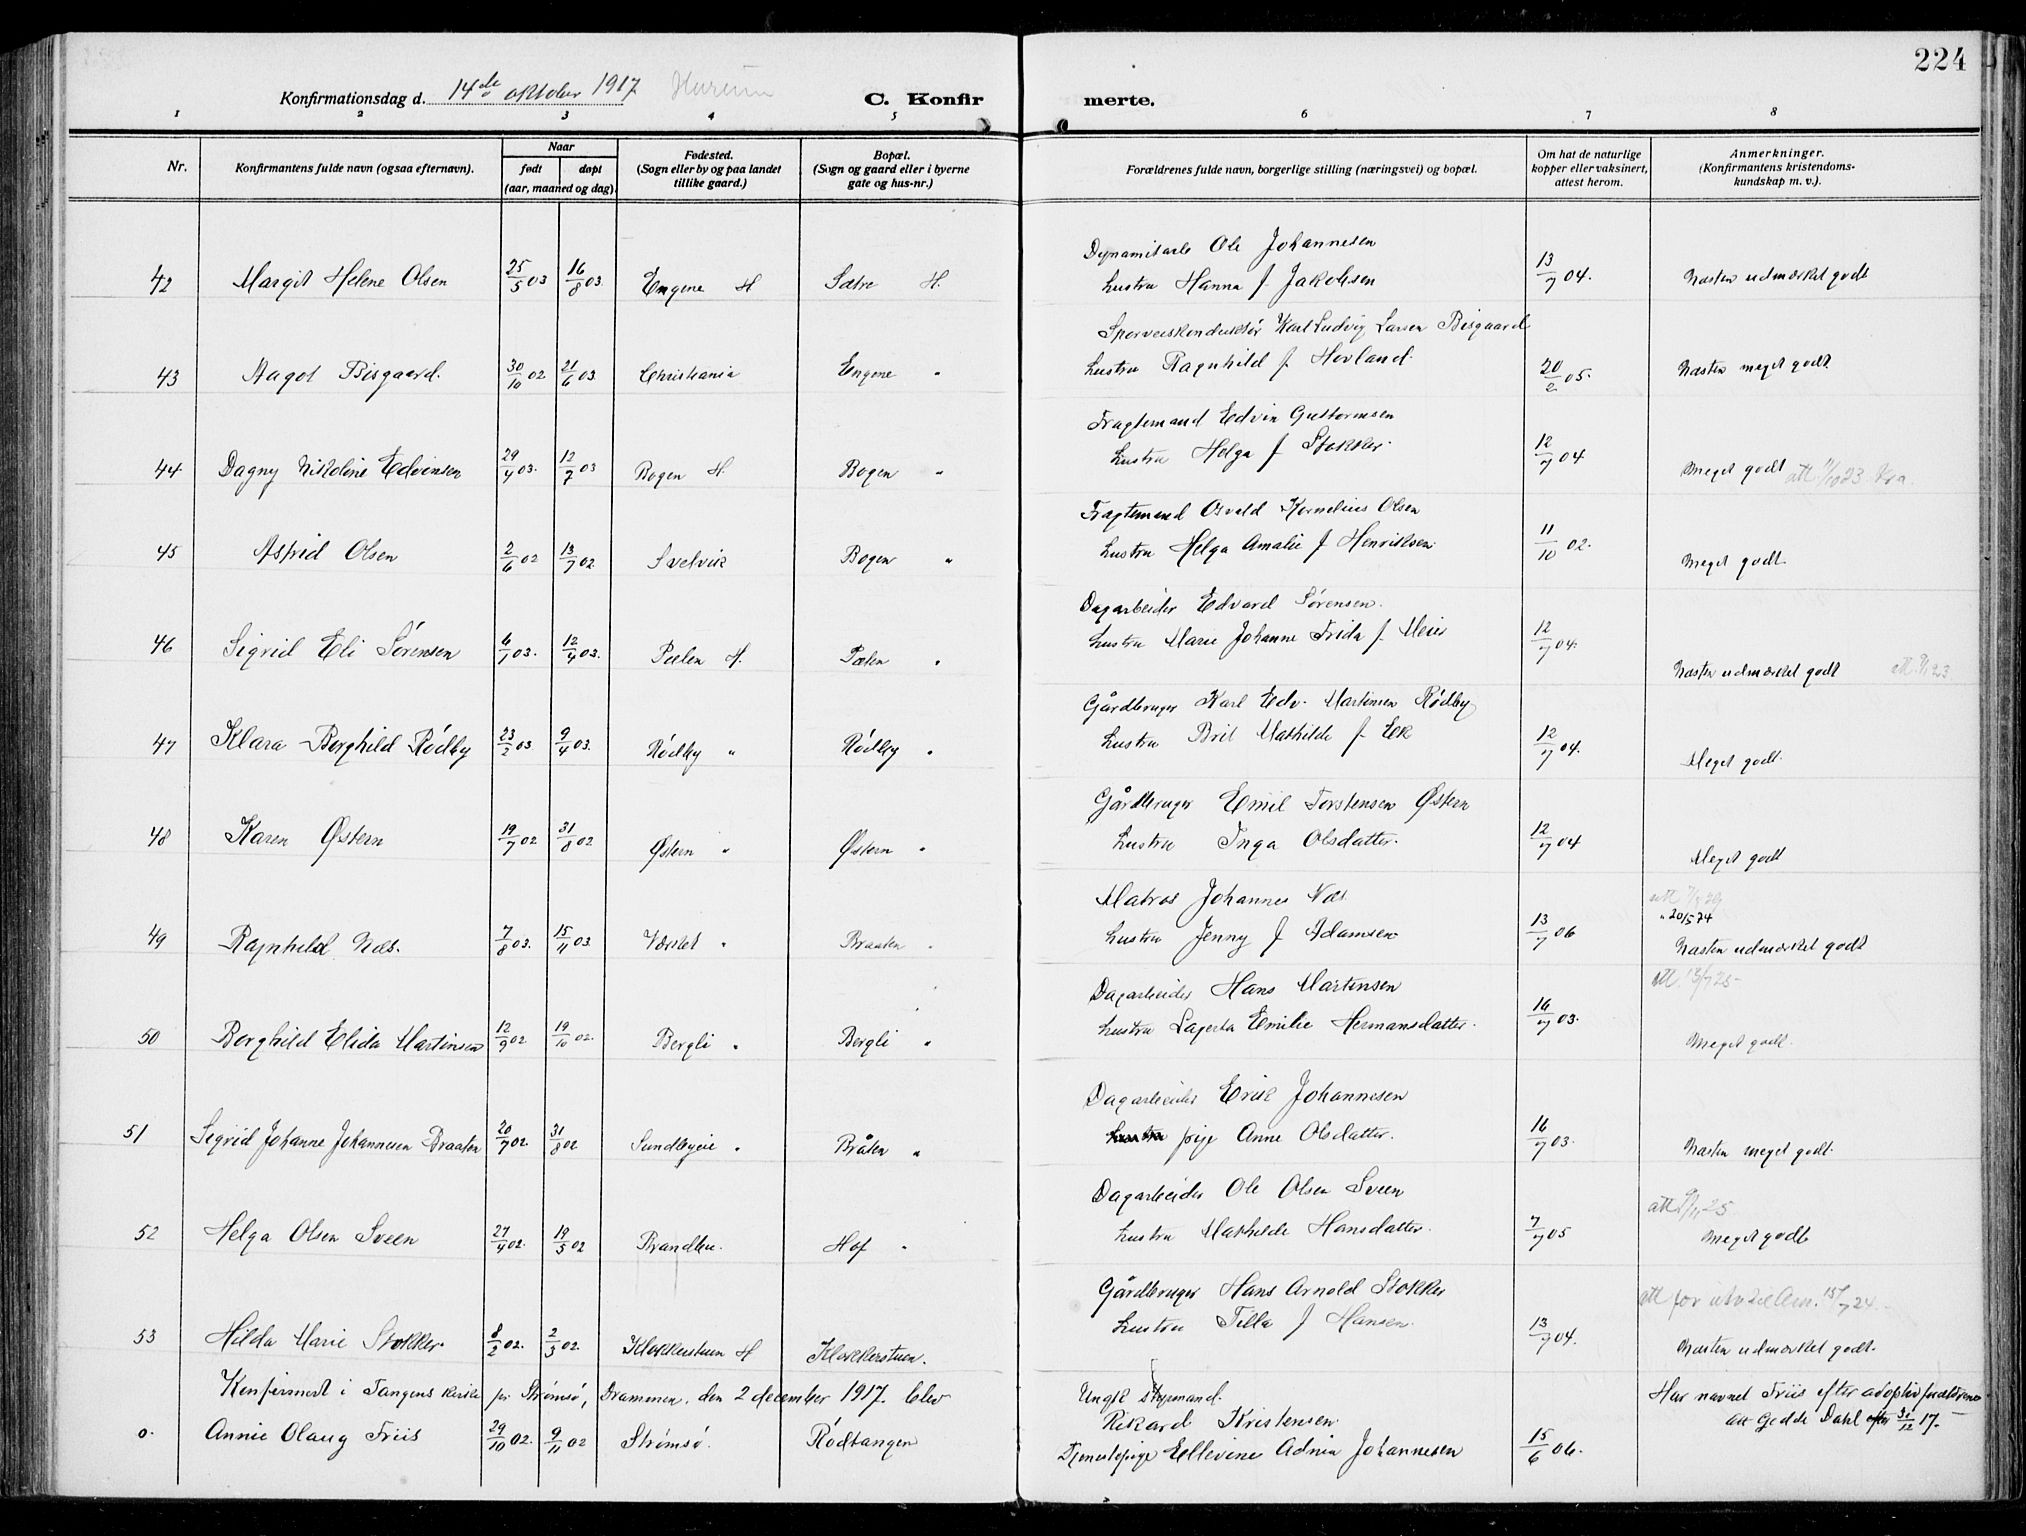 224
Konfirmationsdag d. 14de oktober 1917 Hurum C. Konfirmerte.
1 2 3 4 5 6 7 8
Nr. Konfirmantens fulde navn (ogsaa efternavn). Naar født døpt (aar, maaned og dag). Fødested. (Sogn eller by og paa landet tillike gaard.) Bopæl. (Sogn og gaard eller i byerne gate og hus-nr.) Forældrenes fulde navn, borgerlige stilling (næringsvei) og bopæl. Om hat de naturlige kopper eller vaksinert, attest herom. Anmerkninger. (Konfirmantens kristendomskundskap m. v.).
Dynamitarb Ole Johannesen
42 Margit Helene Olsen 25/5 03 16/8 03. Engene H Sætre H. hustru Hanna f. Jakobsen 13/7 04. Næsten udmærket godt
Sporveiskonduktør Karl Ludvig Larsen Bisgaard
43 Aagot Bisgaard. 30/10 02 21/6 03. Christiania Engene " hustru Ragnhild f. Hovland. 20/2 05. Næsten meget godt
Fragtemand Edvin Guttormsen
44 Dagny Nikoline Edvinsen 29/4 03. 12/7 03 Bogen H. Bogen " hustru Helga f Stokker. 12/7 04 Meget godt att 11/10 23. Kra.
Fragtemand Osvald Kornelius Olsen
45 Astrid Olsen 2/6 02 13/7 02 Svelvik Bogen " hustru Helga Amalie f Henriksen. 11/10 02. Meget godt.
Dagarbeider Edvard Sørensen.
46 Sigrid Eli Sørensen 6/1 03. 12/4 03. Pælen H. Pælen " hustru Marie Johanne Frida f. Meier 12/7 04. Næsten udmærket godt
Gårdbruger Karl Edv. Martinsen Rødby
47 Klara Borghild Rødby 23/2 03 9/4 03. Rødby " Rødby " hustru Brit Mathilde f. Eek 12/7 04. Meget godt.
Gårdbruger Emil Torstensen Østern
48 Karen Østern 19/7 02 31/8 02 Østern " Østern " hustru Inga Olsdatter. 12/7 04 Meget godt
Matros Johannes Næs
" 20/5 74
49 Ragnhild Næs. 7/8 03. 15/11 03 Værslet " Braaten " hustru Jenny f Adamsen 13/7 06 Næsten udmærket godt
Dagarbeider Hans Martinsen att 13/7 25-
50 Borghild Elida Martinsen 12/9 02 19/10 02. Bergli " Bergli " hustru Lagerta Emilie Hermansdatter. 16/7 03. Meget godt.
Dagarbeider Erik Johannesen
51 Sigrid Johanne Johannesen Braaten 20/7 02. 31/8 02 Sundbyeie " Bråten " pige Anne Olsdatter. 16/7 03. Næsten meget godt.
Dagarbeider Ole Olsen Sveen
52 Helga Olsen Sveen 27/4 02. 19/5 02 Brandbu. Hof " hustru Mathilde Hansdatter. 7/7 05 Meget godt
Gårdbruger Hans Arnold Stokker att for utv til Am. 15/7 24.
53 Hilda Marie Stokker. 8/2 02. 2/3 02. Klokkerstuen H Klokkerstuen. hustru Tilla f Hansen. 13/7 04. Næsten udmærket godt.
Konfirmert i Tangens kirke pr Strømsø, Drammen, den 2 december 1917. blev
Ungk Styrmand. Har navnet Friis efter adoptivforældrene
0. Annie Olaug Friis 29/10 02. 9/11 02 Strømsø. Rødtangen Rikard Kristensen att Gedde Dahl efter 31/12 17.
Tjenestepige Ellevine Adnia Johannesen 15/6 06.